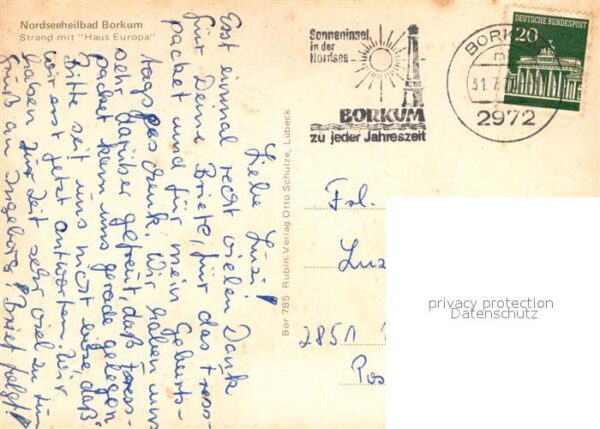 Nordseeheilbad Borkum
Strand mit "Haus Europa"
Liebe Luzi!
Erst einmal recht vielen Dank
für Deine Briefe, für das Fress-
packet und für mein Geburts-
tagsgeschenk. Wir haben uns
sehr darüber gefreut, daß Fress-
packet kam uns gerade gelegen.
Bitte seit uns nicht böse, daß
wir erst jetzt antworten. Wir
haben zur Zeit sehr viel zu tun
Gruß an Ingeborg! Brief folgt!
Bor 785 Rubin Verlag Otto Schulze, Lübeck
Sonneninsel
in der
Nordsee
BORKUM
zu jeder Jahreszeit
BORK
31.7.
2972
DEUTSCHE BUNDESPOST
20
Frl.
Luz
2851
Pos
privacy protection
Datenschutz